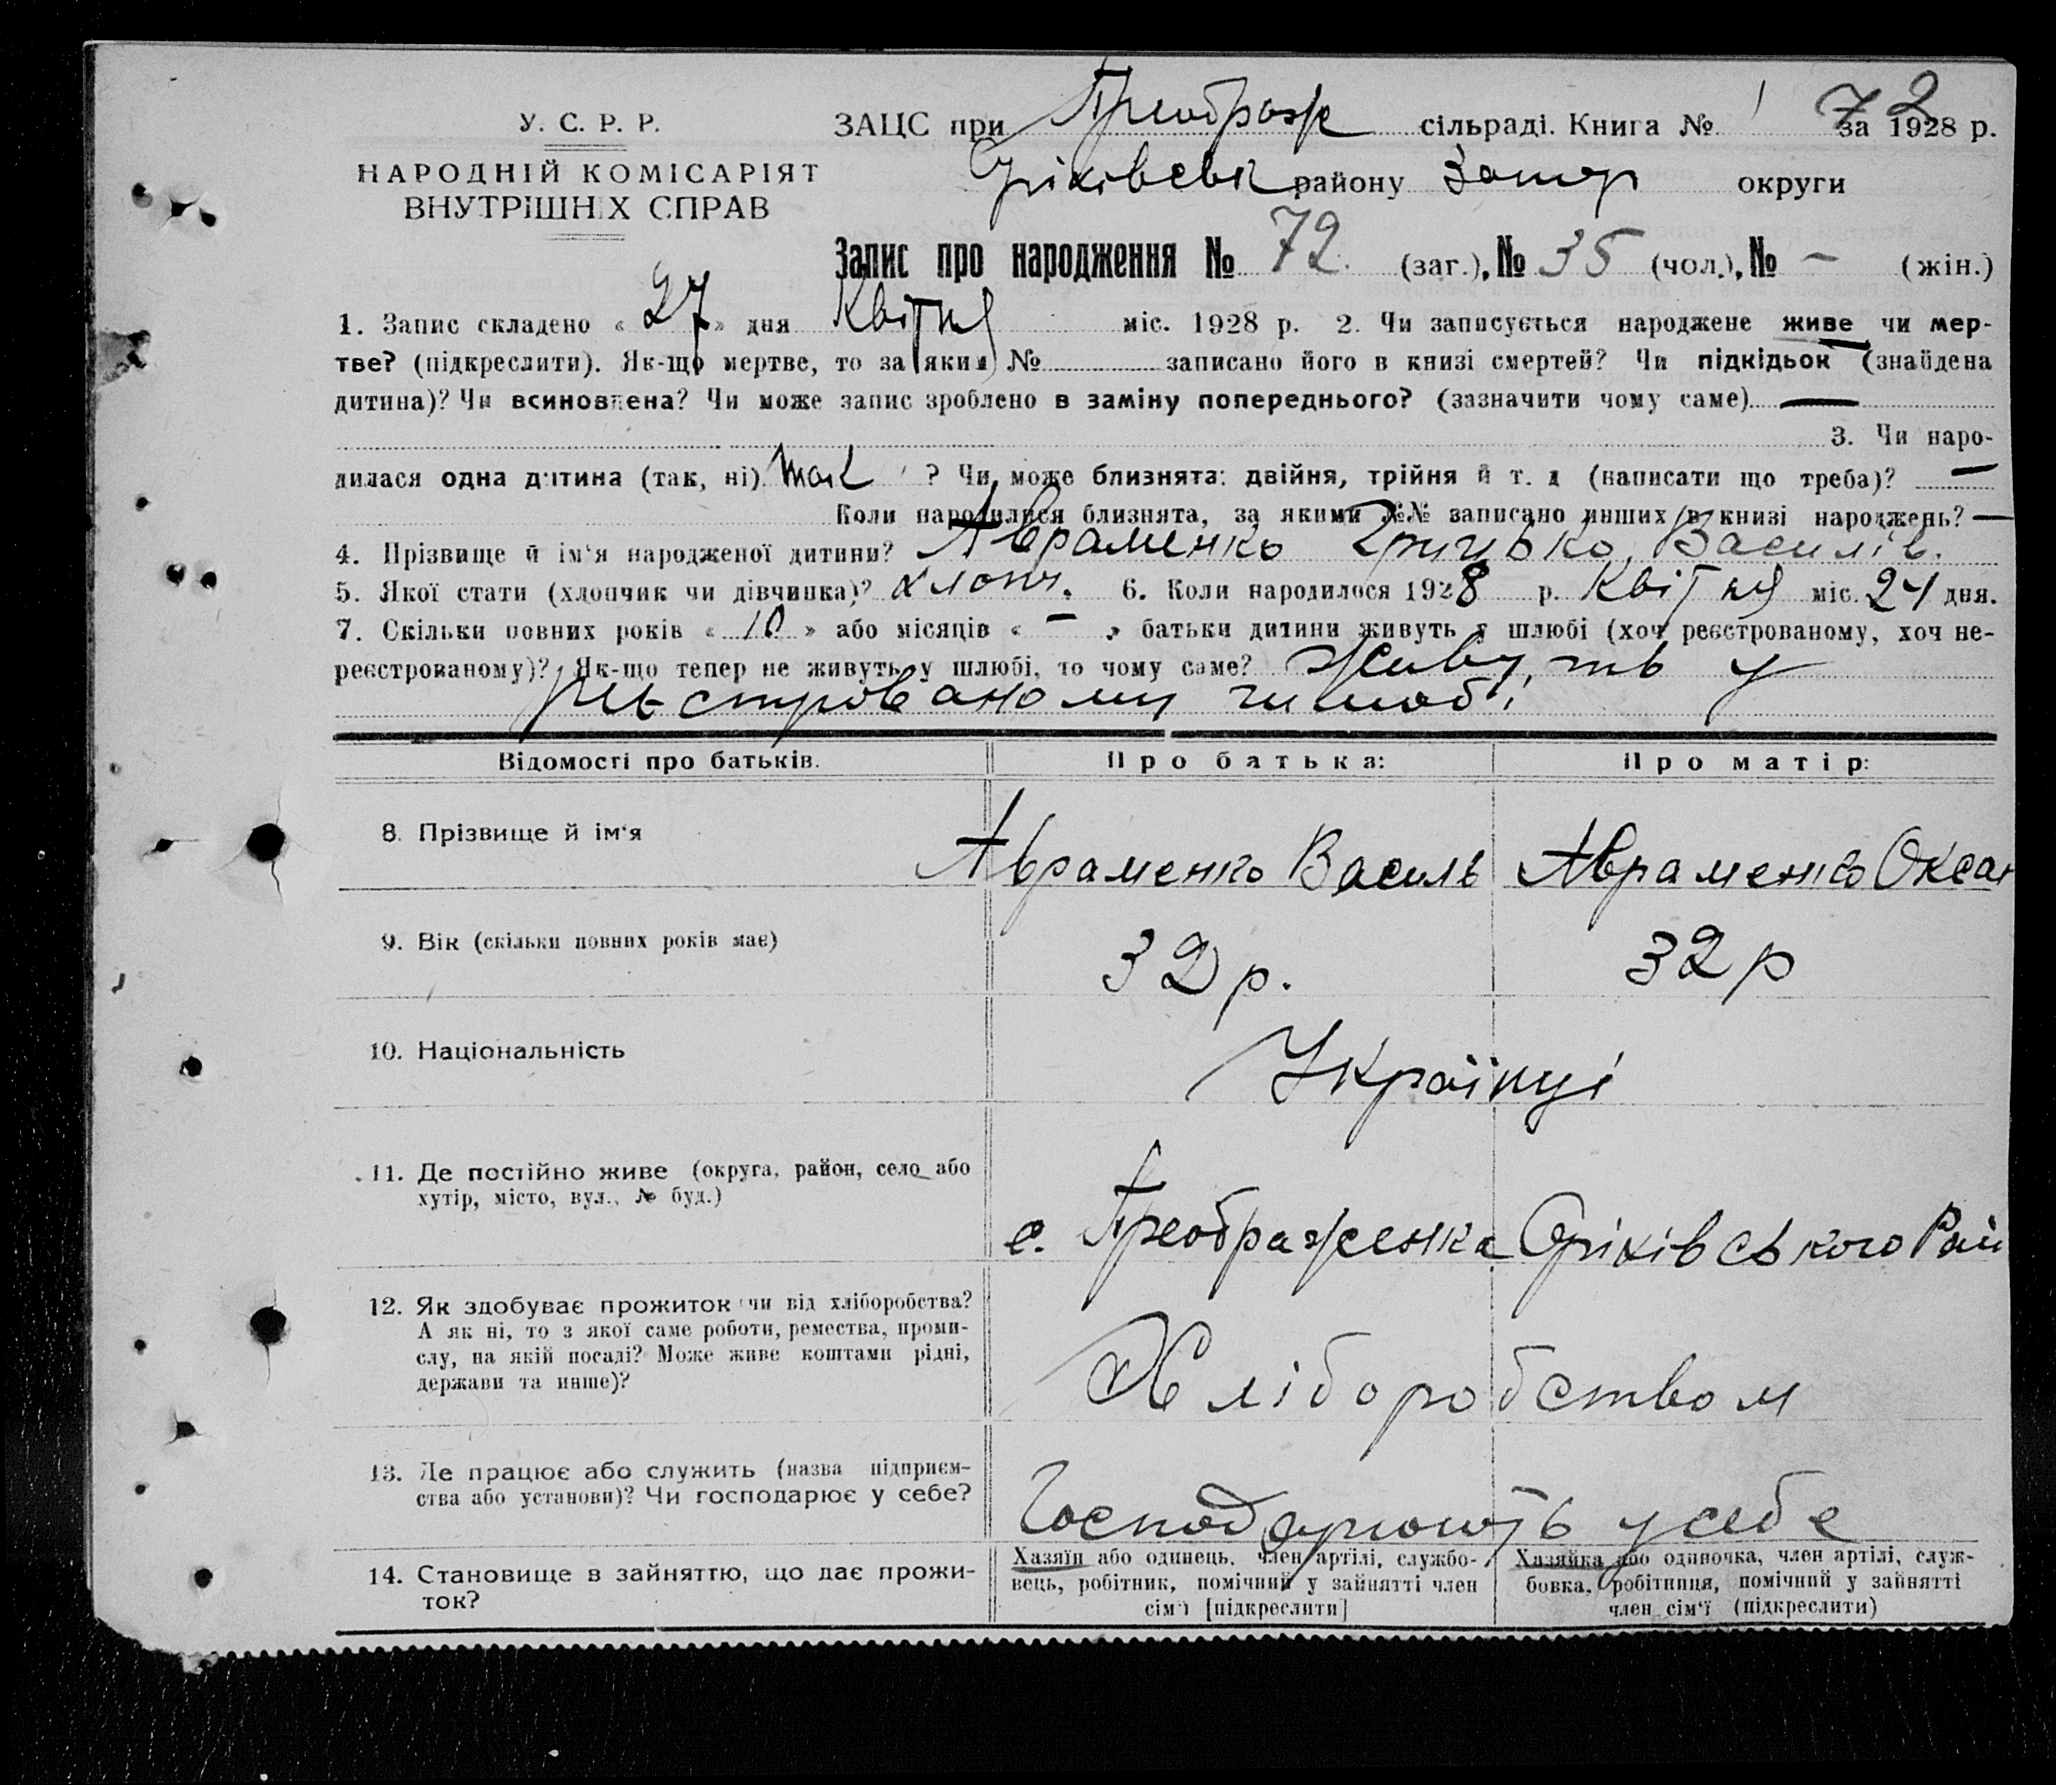 72
У. С. Р. Р.
НАРОДНІЙ КОМІСАРІЯТ
ВНУТРІШНІХ СПРАВ
ЗАЦС при Преображ сільраді. Книга № 1 за 1928 р.
Оріхівськ району Запор округи
Запис про народження № 72. (заг.), № 35 (чол.), № – (жін.)
1. Запис складено « 27 » дня Квітня міс. 1928 р. 2. Чи записується народжене живе чи мер-
тве? (підкреслити). Як-що мертве, то за яким № записано його в книзі смертей? Чи підкідьок (знайдена
дитина)? Чи всиновлена? Чи може запис зроблено в заміну попереднього? (зазначити чому саме) —
3. Чи наро-
дилася одна дитина (так, ні) так ? Чи може близнята: двійня, трійня й т. д (написати що треба)? —
Коли народилися близнята, за якими №№ записано инших в книзі народжень? —
4. Прізвище й ім‘я народженої дитини? Авраменко Грицько Василів.
5. Якої стати (хлопчик чи дівчинка)? хлопч. 6. Коли народилося 1928 р. Квітня міс. 24 дня.
7. Скільки повних років « 10 » або місяців « – » батьки дитини живуть у шлюбі (хоч реєстрованому, хоч не-
реєстрованому)? Як-що тепер не живуть у шлюбі, то чому саме? Живуть у
реєстрованому шлюбі
Відомості про батьків. Про батька: Про матір:
8. Прізвище й ім‘я Авраменко Василь Авраменко Оксан
9. Вік (скільки повних років має) 32 р. 32 р
10. Національність Українці
11. Де постійно живе (округа, район, село або
хутір, місто, вул., № буд.)
с. Преображенка Оріхівського Рай
12. Як здобуває прожиток чи від хліборобства?
А як ні, то з якої саме роботи, ремества, проми-
слу, на якій посаді? Може живе коштами рідні,
держави та инше)?
Хліборобством
13. Де працює або служить (назва підприєм-
ства або установи)? Чи господарює у себе?
Господарюють у себе
14. Становище в зайняттю, що дає прожи-
ток?
Хазяїн або одинець, член артілі, службо-
вець, робітник, помічний у зайнятті член
сім‘ї [підкреслити]
Хазяйка або одиночка, член артілі, служ-
бовка, робітниця, помічний у зайнятті
член сім‘ї (підкреслити)